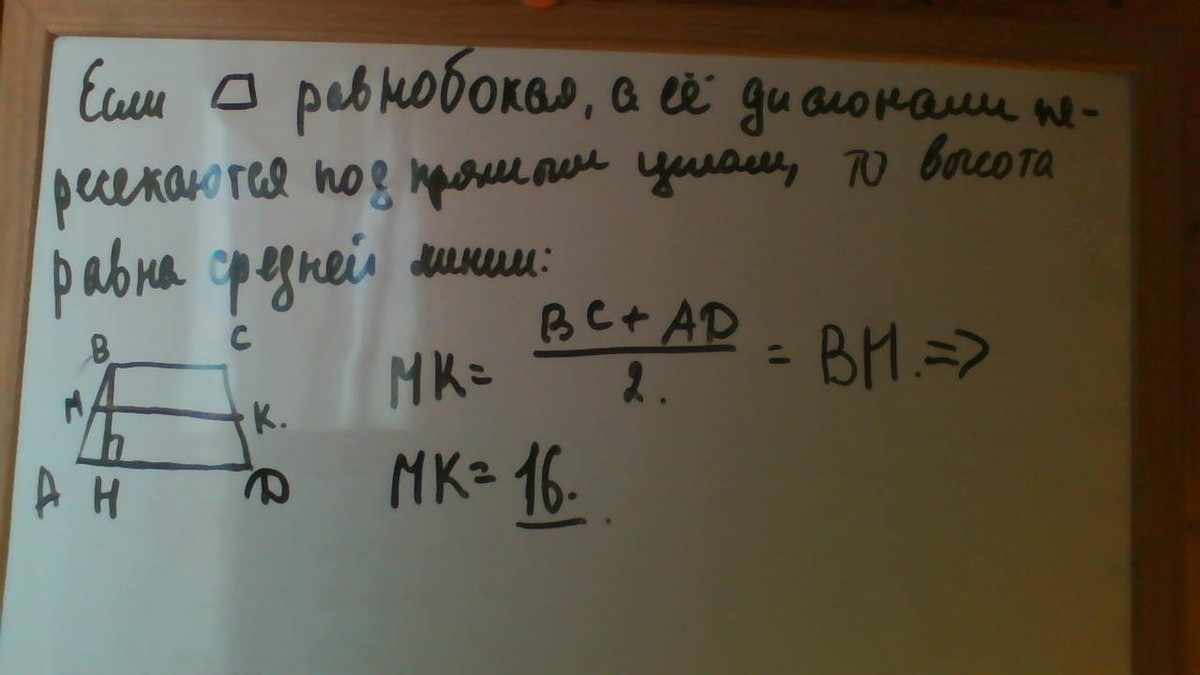 Если ▱ равнобокая, а её диагонами пе-
ресекаются под прямым углом, то высота
равна средней линии:
B C
M K.
A H D
MK = BC + AD / 2. = BH. =>
MK = 16.